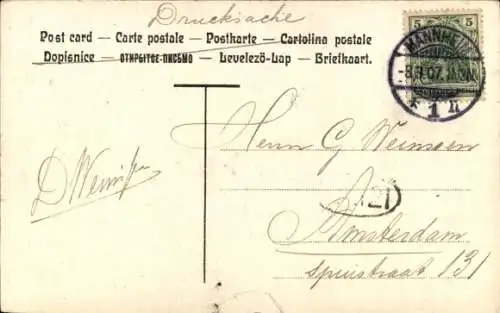 Drucksache
Post card — Carte postale — Postkarte — Cartolina postale
Dopisnice — ОТКРЫТОЕ-ПИСЬМО — Levelező-Lap — Briefkaart.
5 5
MANNHEIM
1
Herrn G
121
Amsterdam
spuistraat 131
D